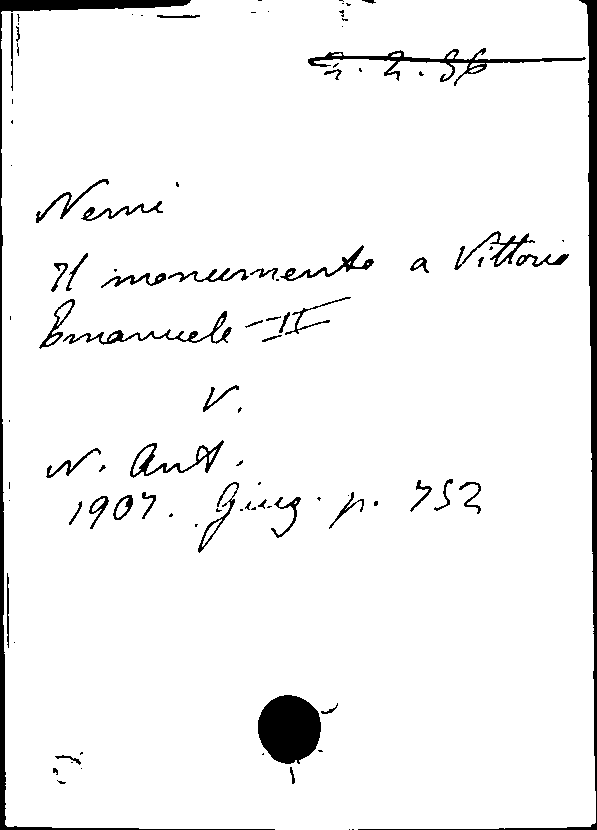 2. 2. 36
Nemi
Il monumento a Vittorio
Emanuele II
V.
N. Ant.
1907. Giug. p. 752